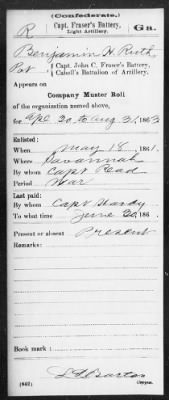 (Confederate.)
R Capt. Fraser's Battery, Light Artillery. Ga.
Benjamin H. Ruth
Pvt, Capt. John C. Fraser's Battery, Cabell's Battalion of Artillery.
Appears on
Company Muster Roll
of the organization named above,
for Apl 30 to Aug 31, 1863
Enlisted:
When May 18, 1861.
Where Savannah
By whom Capt Read
Period War
Last paid:
By whom Capt Hardy
To what time June 30, 186 .
Present or absent Present
Remarks:
Book mark:
(642) Copyist.